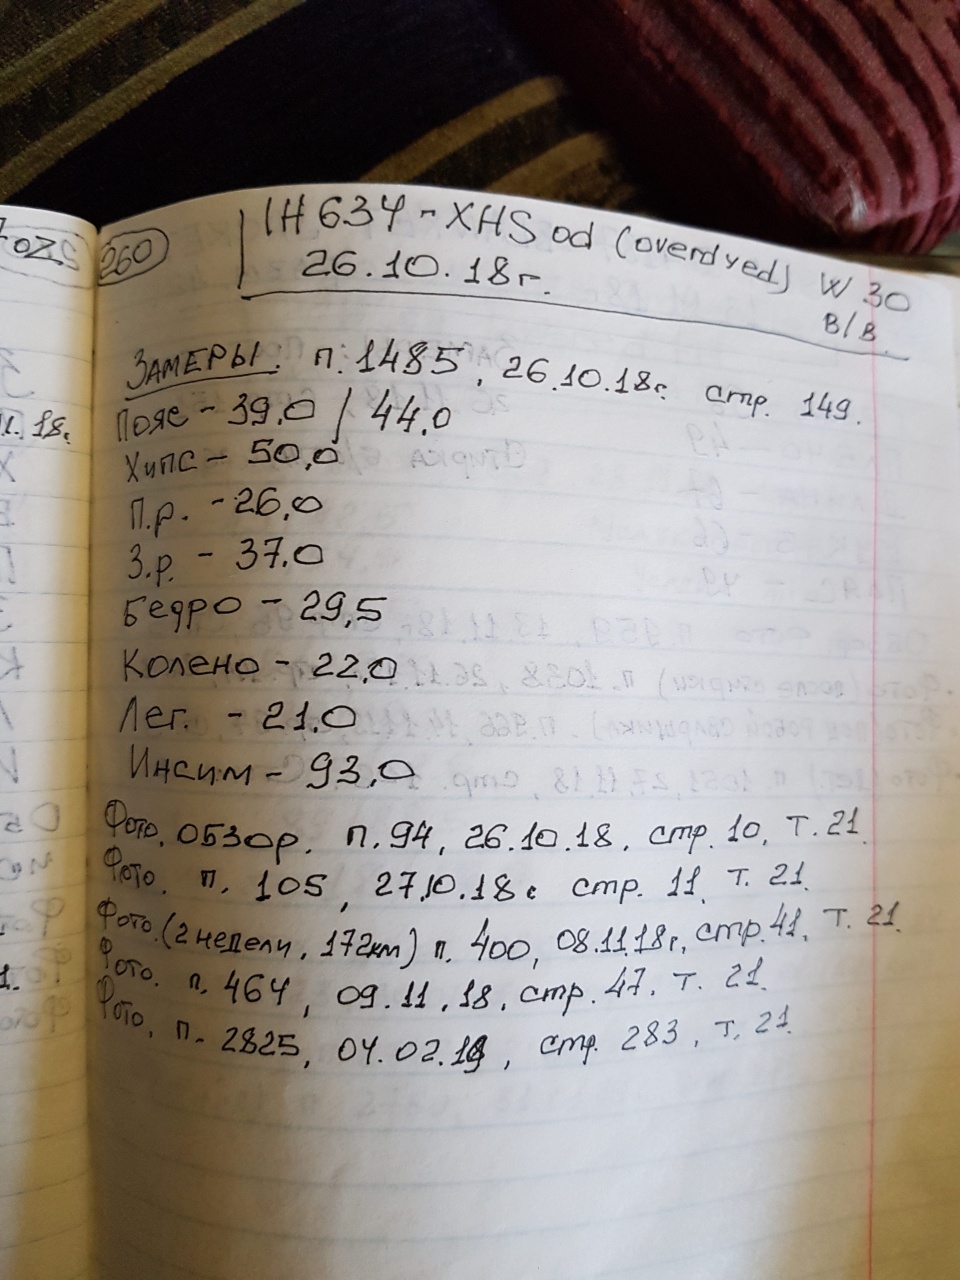 260
IH 634 - XHS od (overdyed) W 30
26.10.18г. В/В
ЗАМЕРЫ. п. 1485, 26.10.18г. стр. 149.
Пояс - 39,0 / 44,0
Хипс - 50,0
П.р. - 26,0
З.р. - 37.0
Бедро - 29,5
Колено - 22,0
Лег. - 21.0
Инсим - 93,0
Фото. ОБЗОР. п. 94, 26.10.18, стр. 10, Т. 21
Фото. п. 105, 27.10.18г стр. 11, Т. 21.
Фото. (2 недели, 172км) п. 400, 08.11.18г, стр. 41, Т. 21.
Фото. п. 464, 09.11.18, стр. 47. Т. 21.
Фото. п. 2825, 04.02.19, стр. 283, Т. 21.
18г.